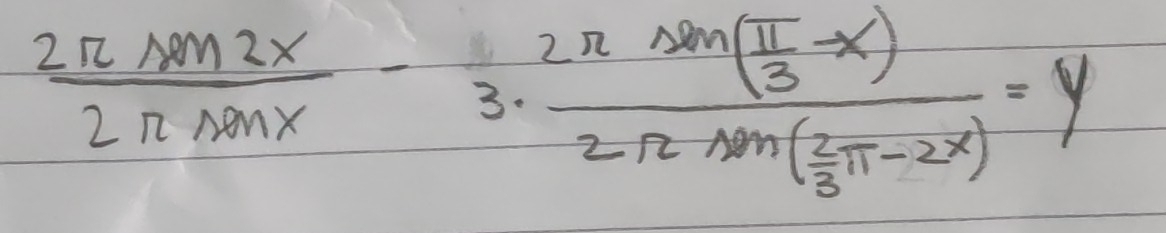 2r sen 2x / 2r sen x - 3 · 2r sen(π/3 - x) / 2r sen(2/3 π - 2x) = y